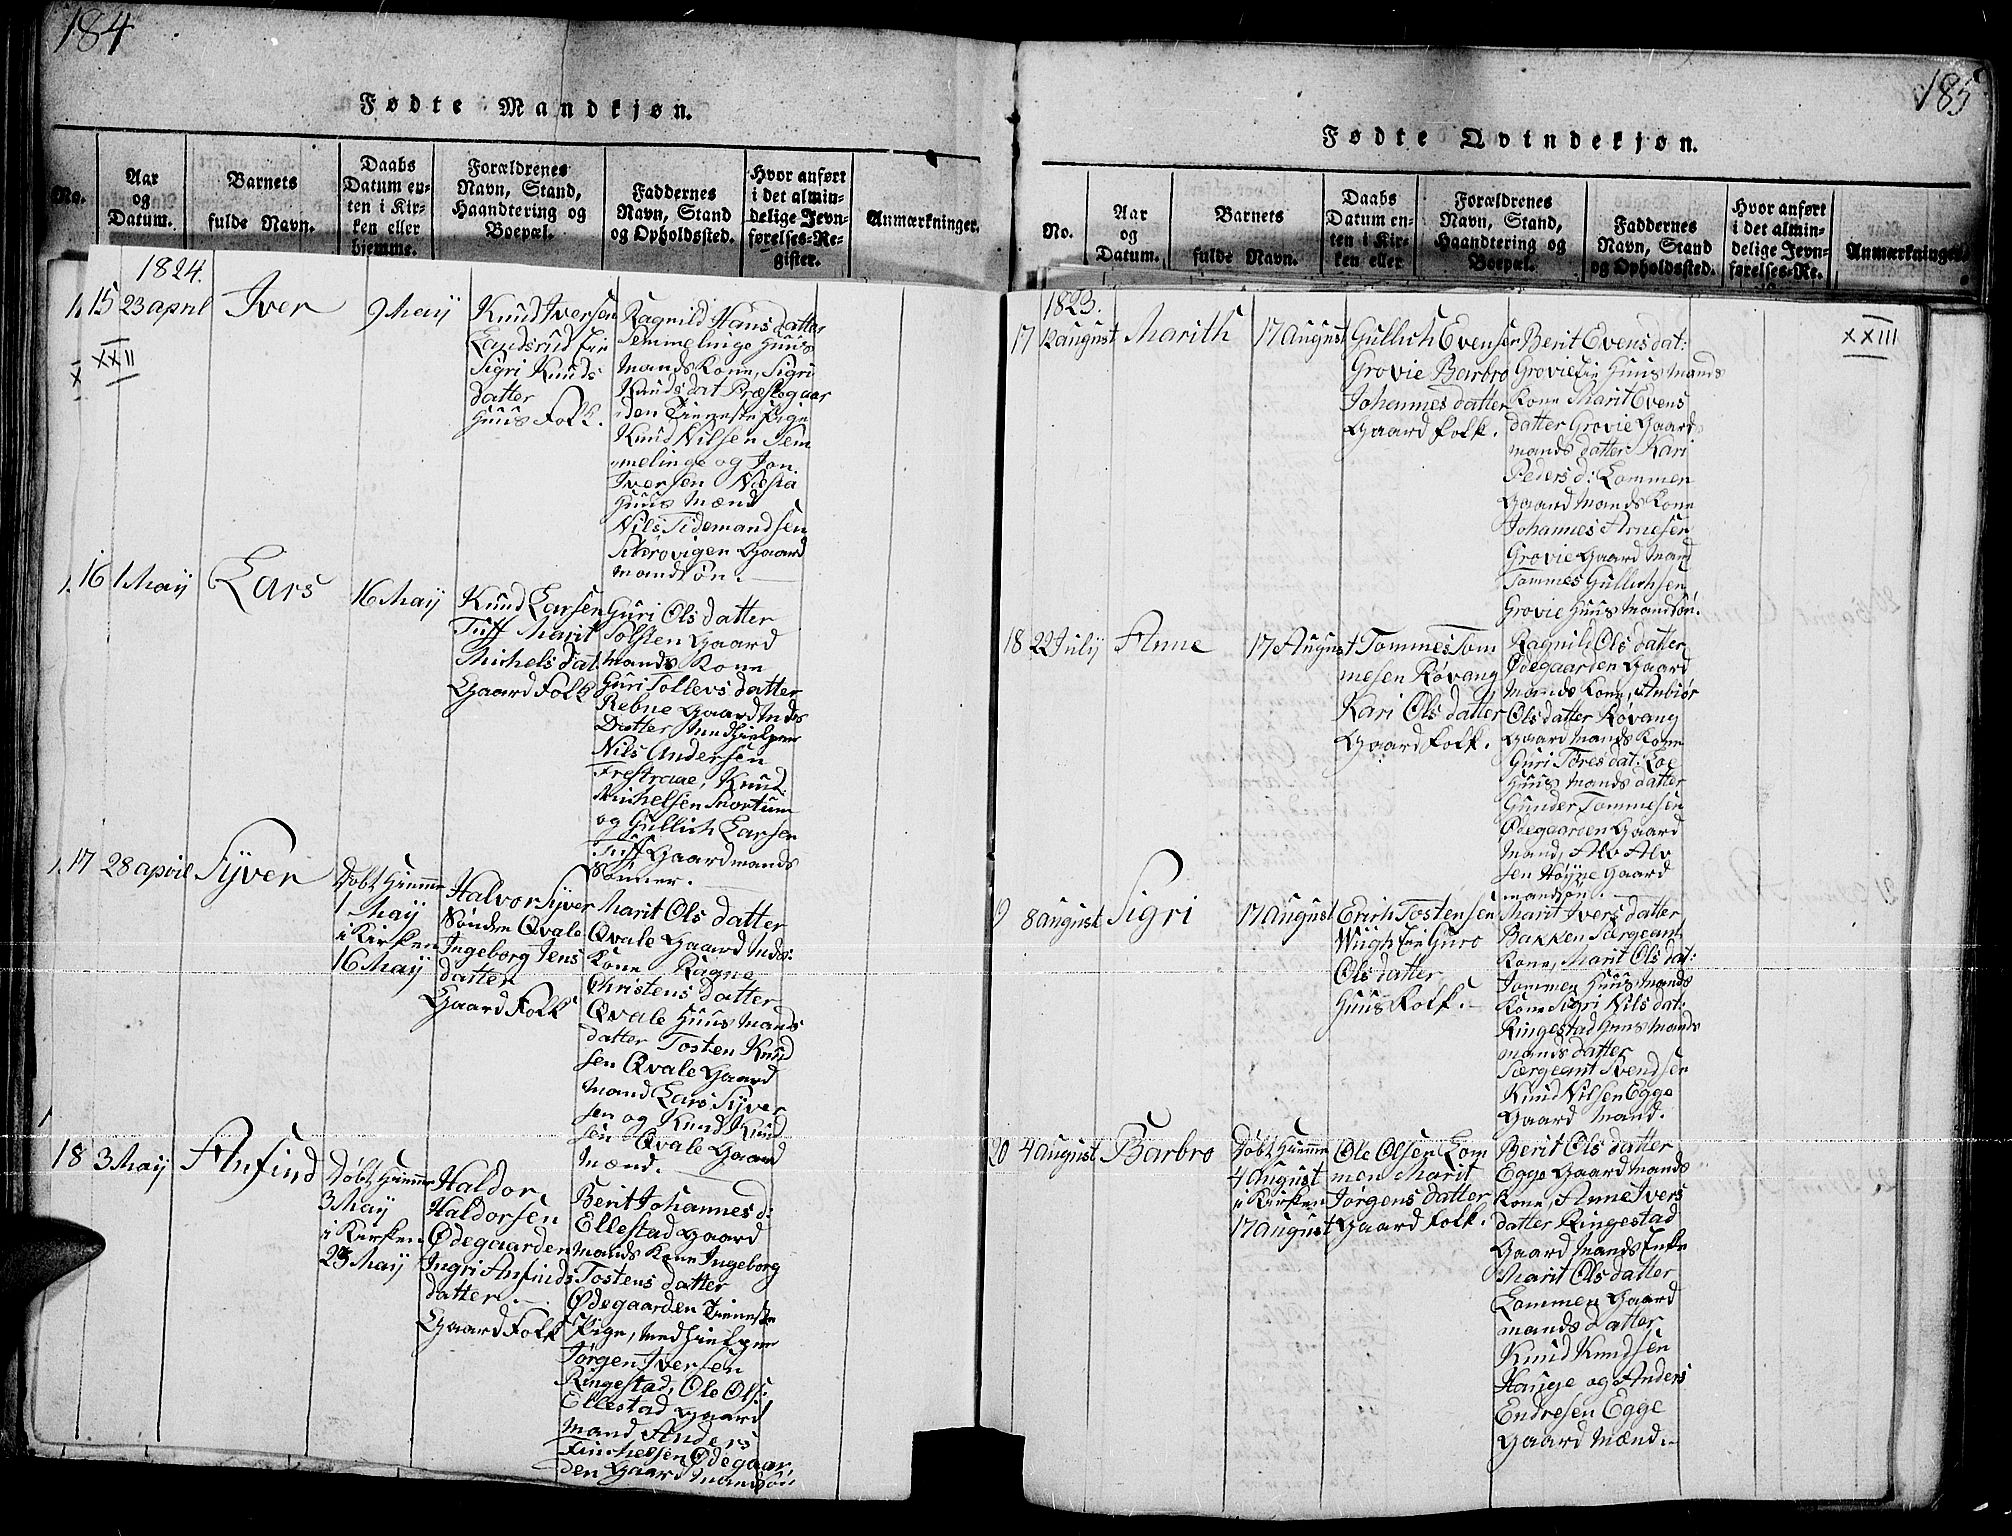 184
Fødte Mandkjøn.
No.
Aar
og
Datum.
Barnets
fulde Navn.
Daabs
Datum en-
ten i Kir-
ken eller
hjemme.
Forældrenes
Navn, Stand,
Haandtering og
Boepæl.
Faddernes
Navn, Stand
og Opholdssted.
Hvor anført
i det almin-
delige Jevn-
førelses-Re-
gister.
Anmærkninger.
1824.
15
23 april
Iver
9 Maij
Knud Iversen
Landsrud
Sigri Knuds
datter
Huus Folk.
Ragnild Hans datter
Semmelinge Huus
mands Kone, Sigri
Knuds dat Præstegaar
den Tieneste Pige
Knud Nilsen Sem
melinge og Jon
Iversen Næsia
Huus Mænd
Nils Tidemandsen
Gaard
mandsøn.
XXII
X
16
1 Maij
Lars
16 Maij
Knud Larsen
Tuff Marit
Michels dat
Gaard Folk
Guri Ols datter
Tolsten Gaard
mands Kone
Guri Tollevs datter
Rebne Gaard Mds
Datter, Medhielper
Nils Andersen
Frestraae, Knud
Michelsen Snortum
og Gullich Larsen
Tuff Gaardmands
Sønner.
17
28 april
Syver
Døbt Hiemme
1 Maij
i Kirken
16 Maij
Halvor Syver
Sønden Qvale
Ingeborg Jens
datter
Gaard Folk
Marit Ols datter
Qvale Gaard Mds:
Kone Ragne
Christens datter
Qvale Huus Mands
datter Tosten Knud
sen Qvale Gaard
Mand Lars Syver
sen og Knud Knud
sen Qvale Gaard
Mænd.
18
3 Maij
Anfind
Døbt Hiemme
3 Maij
i Kirken
23 Maij
Haldor
Haldorsen
Ødegaarden
Ingri Anfinds
datter.
Gaard Folk
Berit Johannes d:
Ellestad Gaard
mands Kone Ingeborg
Tostens datter
Ødegaarden Tieneste
Pige, Medhielper
Jørgen Iversen
Ringestad, Ole Ols:
Ellestad Gaard
mand Anders
Ødegaar
den Gaard Mandsøn
185
Fødte Qvindekjøn.
No.
Aar
og
Datum.
Barnets
fulde Navn.
Daabs
Datum en-
ten i Kir-
ken eller
Forældrenes
Navn, Stand,
Haandtering og
Boepæl.
Faddernes
Navn, Stand
og Opholdssted.
Hvor anført
i det almin-
delige Jevn-
førelses-Re-
Anmærkninger.
1823.
17
12 august
Marith
17 August
Gullich Evensen
Grovie Barbro
Johannes datter
Gaard Folk.
Berit Evens dat:
Grovie Huus Mands
Kone Marit Evens
datter Grovie Gaard
mands datter Kari
Peders d: Lommen
Gaard Mands Kone
Johannes Arnesen
Grovie Gaard Mand
Tommes Gullichsen
Grovie Huus Mandsøn.
XXIII
18
22 Julij
Anne
17 August
Tommes Tom
mesen Røvang
Kari Ols datter
Gaard Folk.
Ragnild Ols datter
Ødegaarden Gaard
Mands Kone, Anbiør
Ols datter Røvang
Gaard Mands Kone
Guri Tores dat: Loe
Huus Mands datter
Gunder Tommesen
Ødegaarden Gaard
Mand, Alv Alv
sen Høyne Gaard
mandsøn.
9
8 august
Sigri
17 August
Erich Tostensen
Wiigh Guro
Ols datter
Huus Folk.
Marit Ivers datter
Bakken Særgeant
Kone, Marit Ols dat:
Jommen Huus mands
Kone Sigri Nils dat:
Ringestad Huus Mands
mands datter
Særgeant Svendsen
Knud Nilsen Egge
Gaard Mand.
20
4 august
Barbro
Døbt Hiemme
4 August
i Kirken
17 August
Ole Olsen Lom
men Marit
Jørgens datter
Gaard Folk.
Berit Ols datter
Egge Gaard Mands
Kone, Anne Ivers
datter Ringestad
Gaard Mands Enke
Marit Ols datter
Lommen Gaard
mands datter
Knud Knudsen
Hauge og Anders
Endresen Egge
Gaard Mænd.